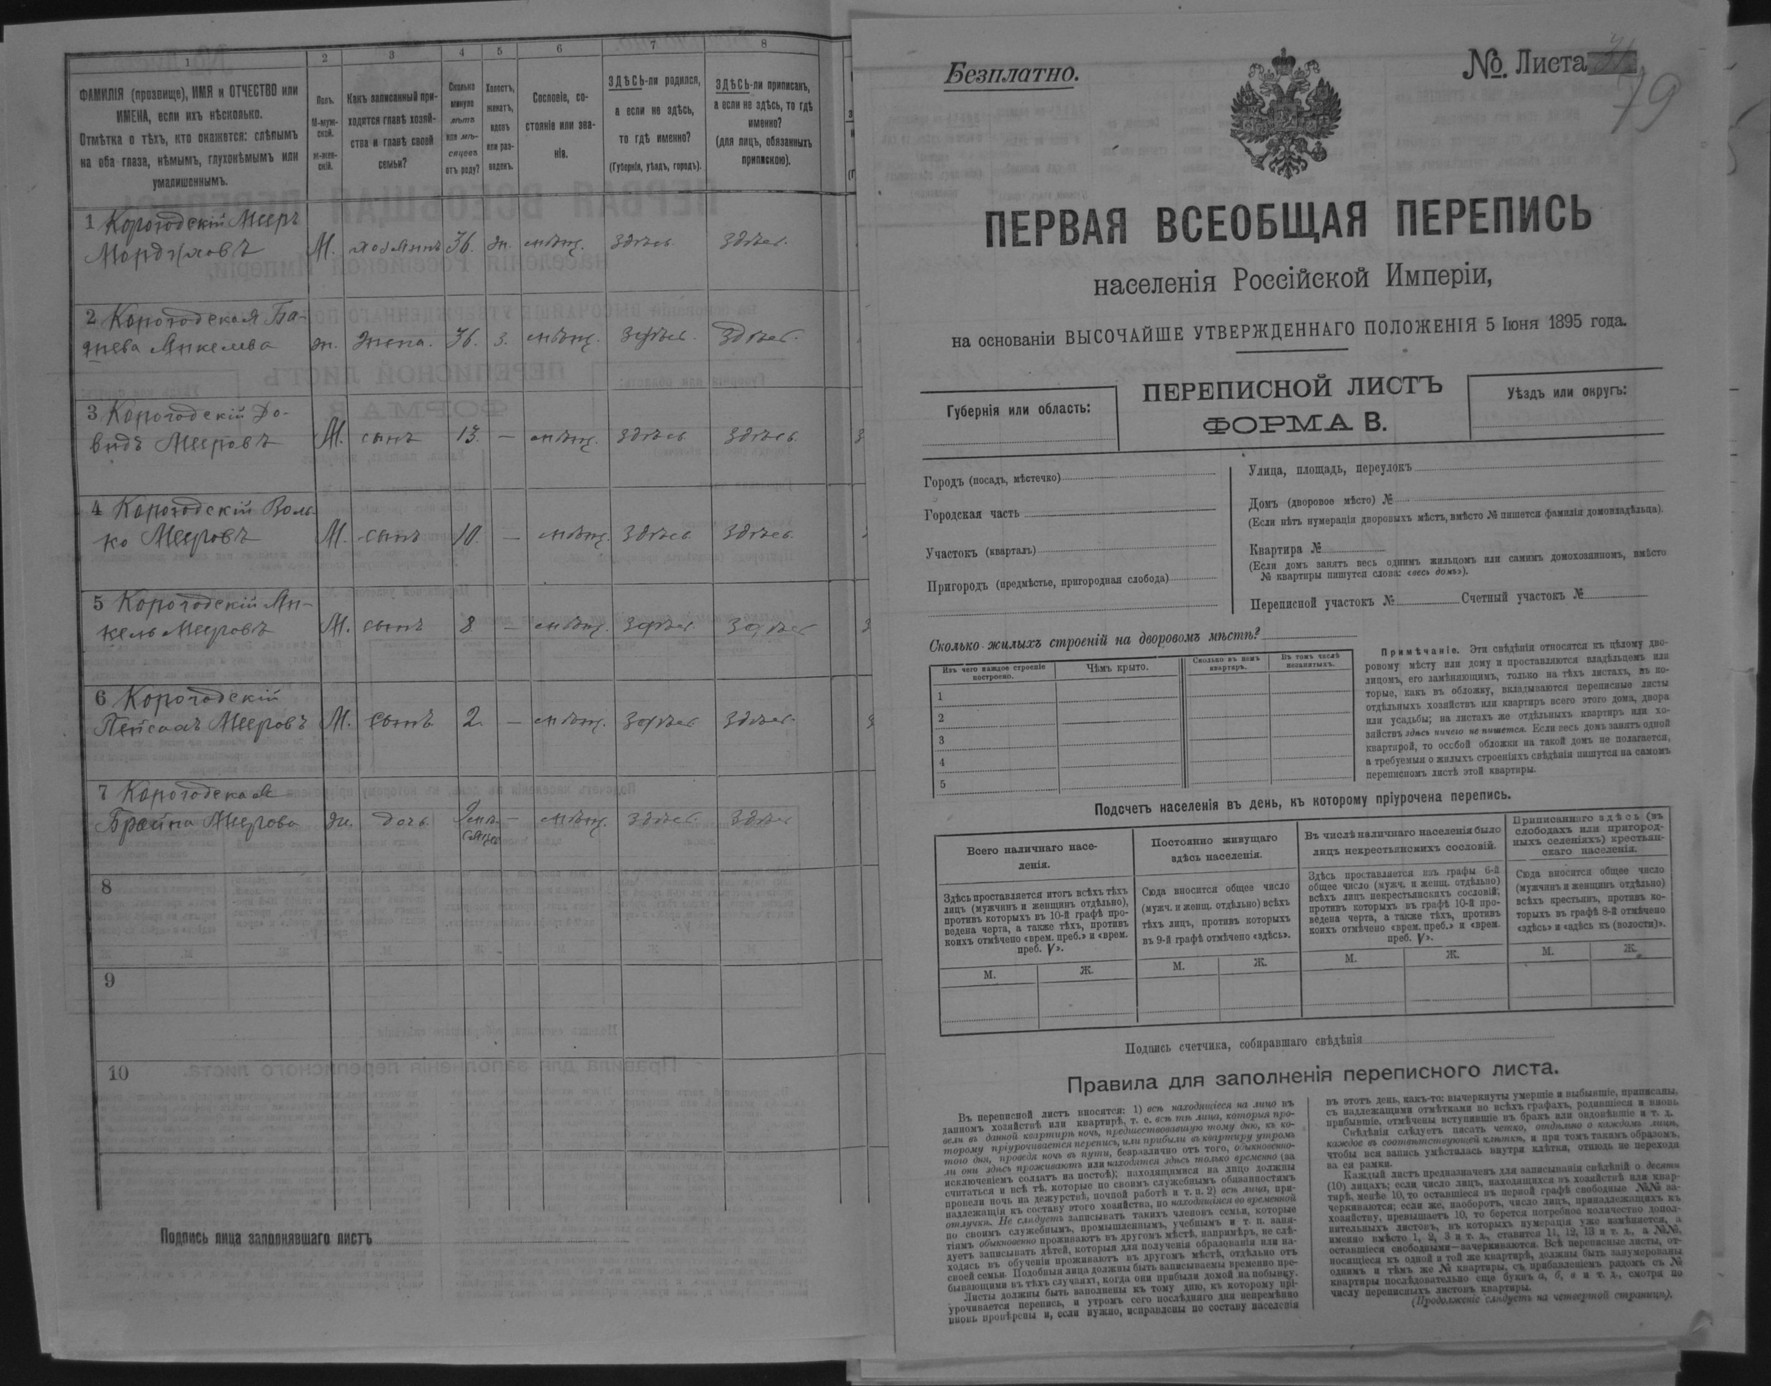 1
2
3
4
5
6
7
8
ФАМИЛІЯ (прозвище), ИМЯ и ОТЧЕСТВО или
ИМЕНА, если ихъ нѣсколько.
Отмѣтка о тѣхъ, кто окажется: слѣпымъ
на оба глаза, нѣмымъ, глухонѣмымъ или
умалишеннымъ.
Полъ.
М-муж-
ской.
ж-жен-
скій.
Какъ записанный при-
ходится главѣ хозяй-
ства и главѣ своей
семьи?
Сколько
минуло
лѣтъ
или мѣ-
сяцевъ
отъ роду?
Холостъ,
женатъ,
вдовъ
или раз-
веденъ.
Сословіе, со-
стояніе или зва-
ніе.
ЗДѢСЬ-ли родился,
а если не здѣсь,
то гдѣ именно?
(Губернія, уѣздъ, городъ).
ЗДѢСЬ-ли приписанъ,
а если не здѣсь, то гдѣ
именно?
(для лицъ, обязанныхъ
припискою).
1 Корогодскій Мееръ
Мордуховъ М. хозяинъ 36. жн. мѣщ. здѣсь здѣсь.
2 Корогодская Ба-
Янкелева ж. жена. 36. з. мѣщ. здѣсь. здѣсь.
3 Корогодскій До-
видъ Мееровъ М. сынъ 13. — мѣщ. здѣсь здѣсь
4 Корогодскій Воль-
ко Мееровъ М. сынъ 10. — мѣщ. здѣсь здѣсь
5 Корогодскій Ян-
кель Мееровъ М. сынъ 8 — мѣщ. здѣсь здѣсь
6 Корогодскій
Пейсахъ Мееровъ М. сынъ 2. — мѣщ. здѣсь здѣсь
7 Корогодская
Брайна Меерова ж. дочь — мѣщ. здѣсь здѣсь
8
9
10
Подпись лица заполнявшаго листъ
Безплатно.
№ Листа
79
ПЕРВАЯ ВСЕОБЩАЯ ПЕРЕПИСЬ
населенія Россійской Имперіи,
на основаніи ВЫСОЧАЙШЕ УТВЕРЖДЕННАГО ПОЛОЖЕНІЯ 5 Іюня 1895 года.
Губернія или область:
ПЕРЕПИСНОЙ ЛИСТЪ
ФОРМА В.
Уѣздъ или округъ:
Городъ (посадъ, мѣстечко)
Городская часть
Участокъ (кварталъ)
Пригородъ (предмѣстье, пригородная слобода)
Улица, площадь, переулокъ
Домъ (дворовое мѣсто) №
(Если нѣтъ нумераціи дворовыхъ мѣстъ, вмѣсто № пишется фамилія домовладѣльца).
Квартира №
(Если домъ занятъ весь однимъ жильцомъ или самимъ домохозяиномъ, вмѣсто
№ квартиры пишутся слова: «весь домъ»).
Переписной участокъ № Счетный участокъ №
Сколько жилыхъ строеній на дворовомъ мѣстѣ?
Изъ чего каждое строеніе
построено.
Чѣмъ крыто.
Сколько въ немъ
квартиръ.
Въ томъ числѣ
незанятыхъ.
1
2
3
4
5
Примѣчаніе. Эти свѣдѣнія относятся къ цѣлому дво-
ровому мѣсту или дому и проставляются владѣльцемъ или
лицомъ, его замѣняющимъ, только на тѣхъ листахъ, въ ко-
торые, какъ въ обложку, вкладываются переписные листы
отдѣльныхъ хозяйствъ или квартиръ всего этого дома, двора
или усадьбы; на листахъ же отдѣльныхъ квартиръ или хо-
зяйствъ здѣсь ничего не пишется. Если весь домъ занятъ одной
квартирой, то особой обложки на такой домъ не полагается,
а требуемыя о жилыхъ строеніяхъ свѣдѣнія пишутся на самомъ
переписномъ листѣ этой квартиры.
Подсчетъ населенія въ день, къ которому пріурочена перепись.
Всего наличнаго насе-
ленія.
Здѣсь проставляется итогъ всѣхъ тѣхъ
лицъ (мужчинъ и женщинъ отдѣльно),
противъ которыхъ въ 10-й графѣ про-
ведена черта, а также тѣхъ, противъ
коихъ отмѣчено «врем. преб.» и «врем.
преб. V».
Постоянно живущаго
здѣсь населенія.
Сюда вносится общее число
(мужч. и женщ. отдѣльно) всѣхъ
тѣхъ лицъ, противъ которыхъ
въ 9-й графѣ отмѣчено «здѣсь».
Въ числѣ наличнаго населенія было
лицъ некрестьянскихъ сословій.
Здѣсь проставляется изъ графы 6-й
общее число (мужч. и женщ. отдѣльно)
всѣхъ лицъ некрестьянскихъ сословій,
противъ которыхъ въ графѣ 10-й про-
ведена черта, а также тѣхъ, противъ
коихъ отмѣчено «врем. преб.» и «врем.
преб. V».
Приписаннаго здѣсь (въ
слободахъ или пригород-
ныхъ селеніяхъ) крестьян-
скаго населенія.
Сюда вносится общее число
(мужчинъ и женщинъ отдѣльно)
всѣхъ крестьянъ, противъ ко-
торыхъ въ графѣ 8-й отмѣчено
«здѣсь» и «здѣсь къ (волости)».
М. Ж. М. Ж. М. Ж. М. Ж.
Подпись счетчика, собиравшаго свѣдѣнія
Правила для заполненія переписного листа.
Въ переписной листъ вносятся: 1) всѣ находящіеся на лицо въ
данномъ хозяйствѣ или квартирѣ, т. е. всѣ тѣ лица, которыя про-
вели въ данной квартирѣ ночь, предшествовавшую тому дню, къ ко-
торому пріурочивается перепись, или прибыли въ квартиру утромъ
того дня, проведя ночь въ пути, безразлично отъ того, обыкновенно-
ли они здѣсь проживаютъ или находятся здѣсь только временно (за
исключеніемъ солдатъ на постоѣ); находящимися на лицо должны
считаться и всѣ тѣ, которые по своимъ служебнымъ обязанностямъ
провели ночь на дежурствѣ, ночной работѣ и т. п. 2) всѣ лица, при-
надлежащія къ составу этого хозяйства, но находящіяся во временной
отлучкѣ. Не слѣдуетъ записывать такихъ членовъ семьи, которые
по своимъ служебнымъ, промышленнымъ, учебнымъ и т. п. заня-
тіямъ обыкновенно проживаютъ въ другомъ мѣстѣ, напримѣръ, не слѣ-
дуетъ записывать дѣтей, которыя для полученія образованія или на-
ходясь въ обученіи проживаютъ въ другомъ мѣстѣ, отдѣльно отъ
своей семьи. Подобныя лица должны быть записываемы временно пре-
бывающими въ тѣхъ случаяхъ, когда они прибыли домой на побывку.
Листы должны быть заполнены къ тому дню, къ которому прі-
урочивается перепись, и утромъ сего послѣдняго дня непремѣнно
вновь провѣрены и, если нужно, исправлены по составу населенія
въ этотъ день, какъ-то: вычеркнуты умершіе и выбывшіе, приписаны,
съ надлежащими отмѣтками во всѣхъ графахъ, родившіеся и вновь
прибывшіе, отмѣчены вступившіе въ бракъ или овдовѣвшіе и т. д.
Свѣдѣнія слѣдуетъ писать четко, отдѣльно о каждомъ лицѣ,
каждое въ соотвѣтствующей клѣткѣ, и при томъ такимъ образомъ,
чтобы вся запись умѣстилась внутри клѣтки, отнюдь не переходя
за ея рамки.
Каждый листъ предназначенъ для записыванія свѣдѣній о десяти
(10) лицахъ; если число лицъ, находящихся въ хозяйствѣ или квар-
тирѣ, менѣе 10, то оставшіеся въ первой графѣ свободные №№ за-
черкиваются; если же, наоборотъ, число лицъ, принадлежащихъ къ
хозяйству, превышаетъ 10, то берется потребное количество допол-
нительныхъ листовъ, въ которыхъ нумерація уже измѣняется, а
именно вмѣсто 1, 2, 3 и т. д., ставится 11, 12, 13 и т. д., а №№,
оставшіеся свободными—зачеркиваются. Всѣ переписные листы, от-
носящіеся къ одной и той же квартирѣ, должны быть занумерованы
однимъ и тѣмъ же № квартиры, съ прибавленіемъ рядомъ съ №
квартиры послѣдовательно еще буквъ а, б, в и т. д., смотря по
числу переписныхъ листовъ квартиры.
(Продолженіе слѣдуетъ на четвертой страницѣ).